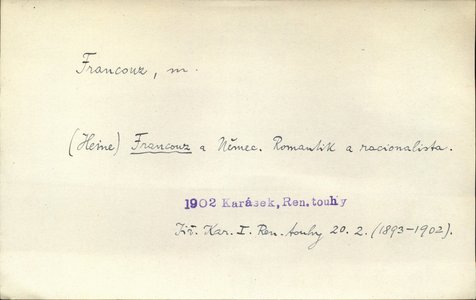 Francouz, m.
(Heine) Francouz a Němec. Romantik a racionalista.
1902 Karásek, Ren.touhy
Jiř. Kar. I. Ren. touhy 20. 2. (1893-1902).